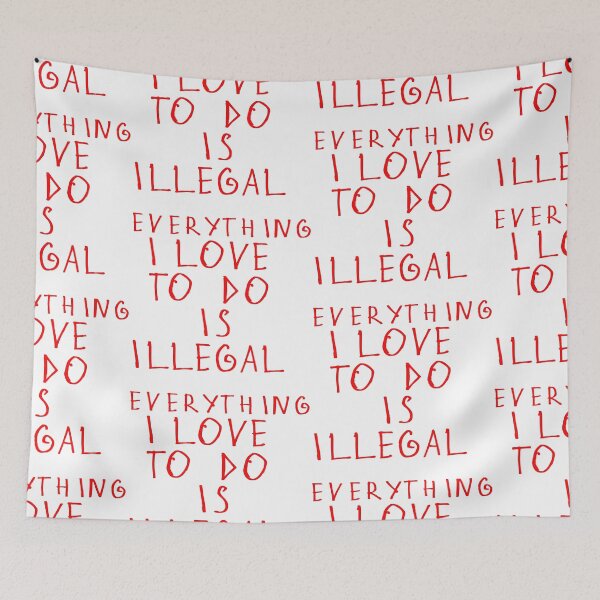 EGAL
YTHING
OVE
DO
S
GAL
YTHING
OVE
DO
S
EGAL
YTHING
OVE
I LOVE
TO DO
IS
ILLEGAL
EVERYTHING
I LOVE
TO DO
IS
ILLEGAL
EVERYTHING
I LOVE
TO DO
IS
ILLEGAL
ILLEGAL
EVERYTHING
I LOVE
TO DO
IS
ILLEGAL
EVERYTHING
I LOVE
TO DO
IS
ILLEGAL
EVERYTHING
I LOVE
I L
TO
I
ILLE
EVERYTH
I LO
TO
I
ILLE
EVERYTH
I LO
TO
I